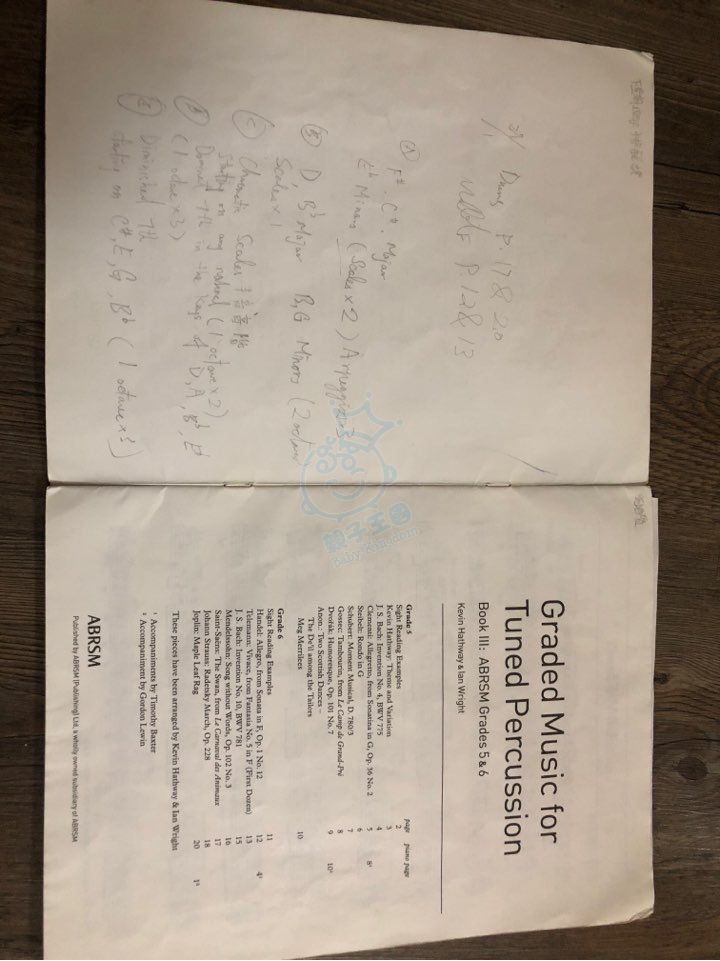 31/1
Drums P. 17 & 20
P. 12 & 13
(A) F#, C# Major
Eb Minors (Scales x 2) Arpeggios
(B) D, Bb Major B, G Minors (2 octave
Scales x 1
(C) Chromatic Scales
starting on any natural (1 octave x 2)
(D) Domint 7th in the keys of D, A, Bb, Eb
(1 octave x 3)
(E) Diminished 7th
starting on C#, E, G, Bb (1 octave x 3)
親子王國
Baby Kingdom
Graded Music for
Tuned Percussion
Book III: ABRSM Grades 5 & 6
Kevin Hathway & Ian Wright
page piano page
Grade 5
Sight Reading Examples 2
Kevin Hathway: Theme and Variation 3
J. S. Bach: Invention No. 4, BWV 775 4
Clementi: Allegretto, from Sonatina in G, Op. 36 No. 2 5 8¹
Steibelt: Rondo in G 6
Schubert: Moment Musical, D. 780/3 7
Gossec: Tambourin, from Le Camp de Grand-Pré 8
Dvořák: Humoresque, Op. 101 No. 7 9 10²
Anon.: Two Scottish Dances –
The De'il among the Tailors
Meg Merrilees 10
Grade 6
Sight Reading Examples 11
Handel: Allegro, from Sonata in F, Op. 1 No. 12 12 4¹
Telemann: Vivace, from Fantasia No. 5 in F (First Dozen) 13
J. S. Bach: Invention No. 10, BWV 781 15
Mendelssohn: Song without Words, Op. 102 No. 3 16
Saint-Saëns: The Swan, from Le Carnaval des Animaux 17
Johann Strauss: Radetsky March, Op. 228 18
Joplin: Maple Leaf Rag 20 1²
These pieces have been arranged by Kevin Hathway & Ian Wright
¹ Accompaniments by Timothy Baxter
² Accompaniment by Gordon Lewin
ABRSM
Published by ABRSM (Publishing) Ltd, a wholly owned subsidiary of ABRSM